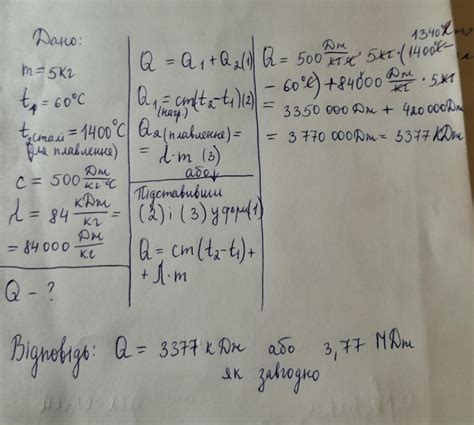 Дано:
m = 5кг
t₁ = 60°C
t₂сталі = 1400°C
(для плавлення)
c = 500 Дж/кг·°C
λ = 84 кДж/кг =
= 84 000 Дж/кг
Q – ?
Q = Q₁ + Q₂ (1)
Q₁ = cm(t₂-t₁) (2)
(нагр.)
Q₂ (плавлення) =
= λ·m (3)
або↓
Підставивши
(2) і (3) у форм(1)
Q = cm(t₂-t₁) +
+ λ·m
1340°C
Q = 500 Дж/кг·°C · 5кг · (1400°C
- 60°C) + 84000 Дж/кг · 5кг
= 3350 000 Дж + 420 000 Дж
= 3 770 000 Дж = 3377 кДж
Відповідь: Q = 3377 кДж або 3,77 МДж
як завгодно